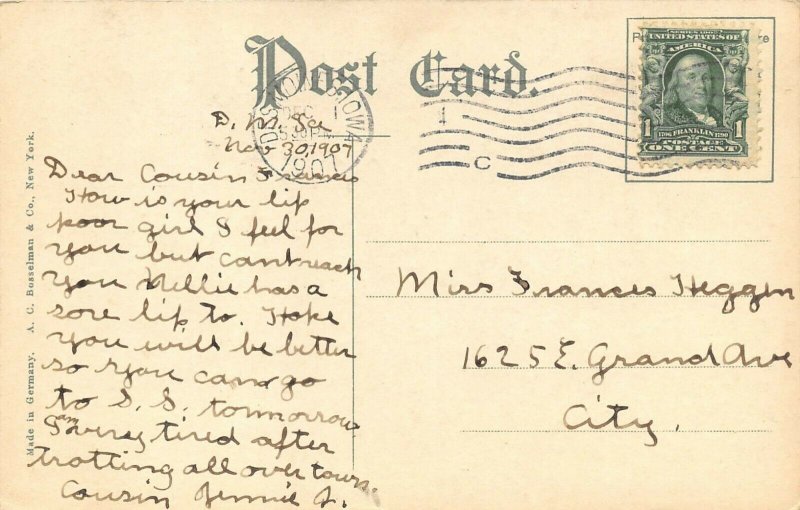 Post Card.
DES MOINES, IOWA
DEC 1
1907
C
SERIES 1902
UNITED STATES OF
AMERICA
1 FRANKLIN 1
1706 1790
POSTAGE
ONE CENT
D. M. Ia
Nov. 30 1907
Dear Cousin Francis
How is your lip
poor girl I feel for
you but cant reach
you Nellie has a
sore lip to. Hope
you will be better
so you can go
to S. S. tomorrow
I am very tired after
trotting all over town.
Cousin Jennie J.
Miss Frances Heggen
1625 E. Grand Ave
City.
Made in Germany. A. C. Bosselman & Co., New York.